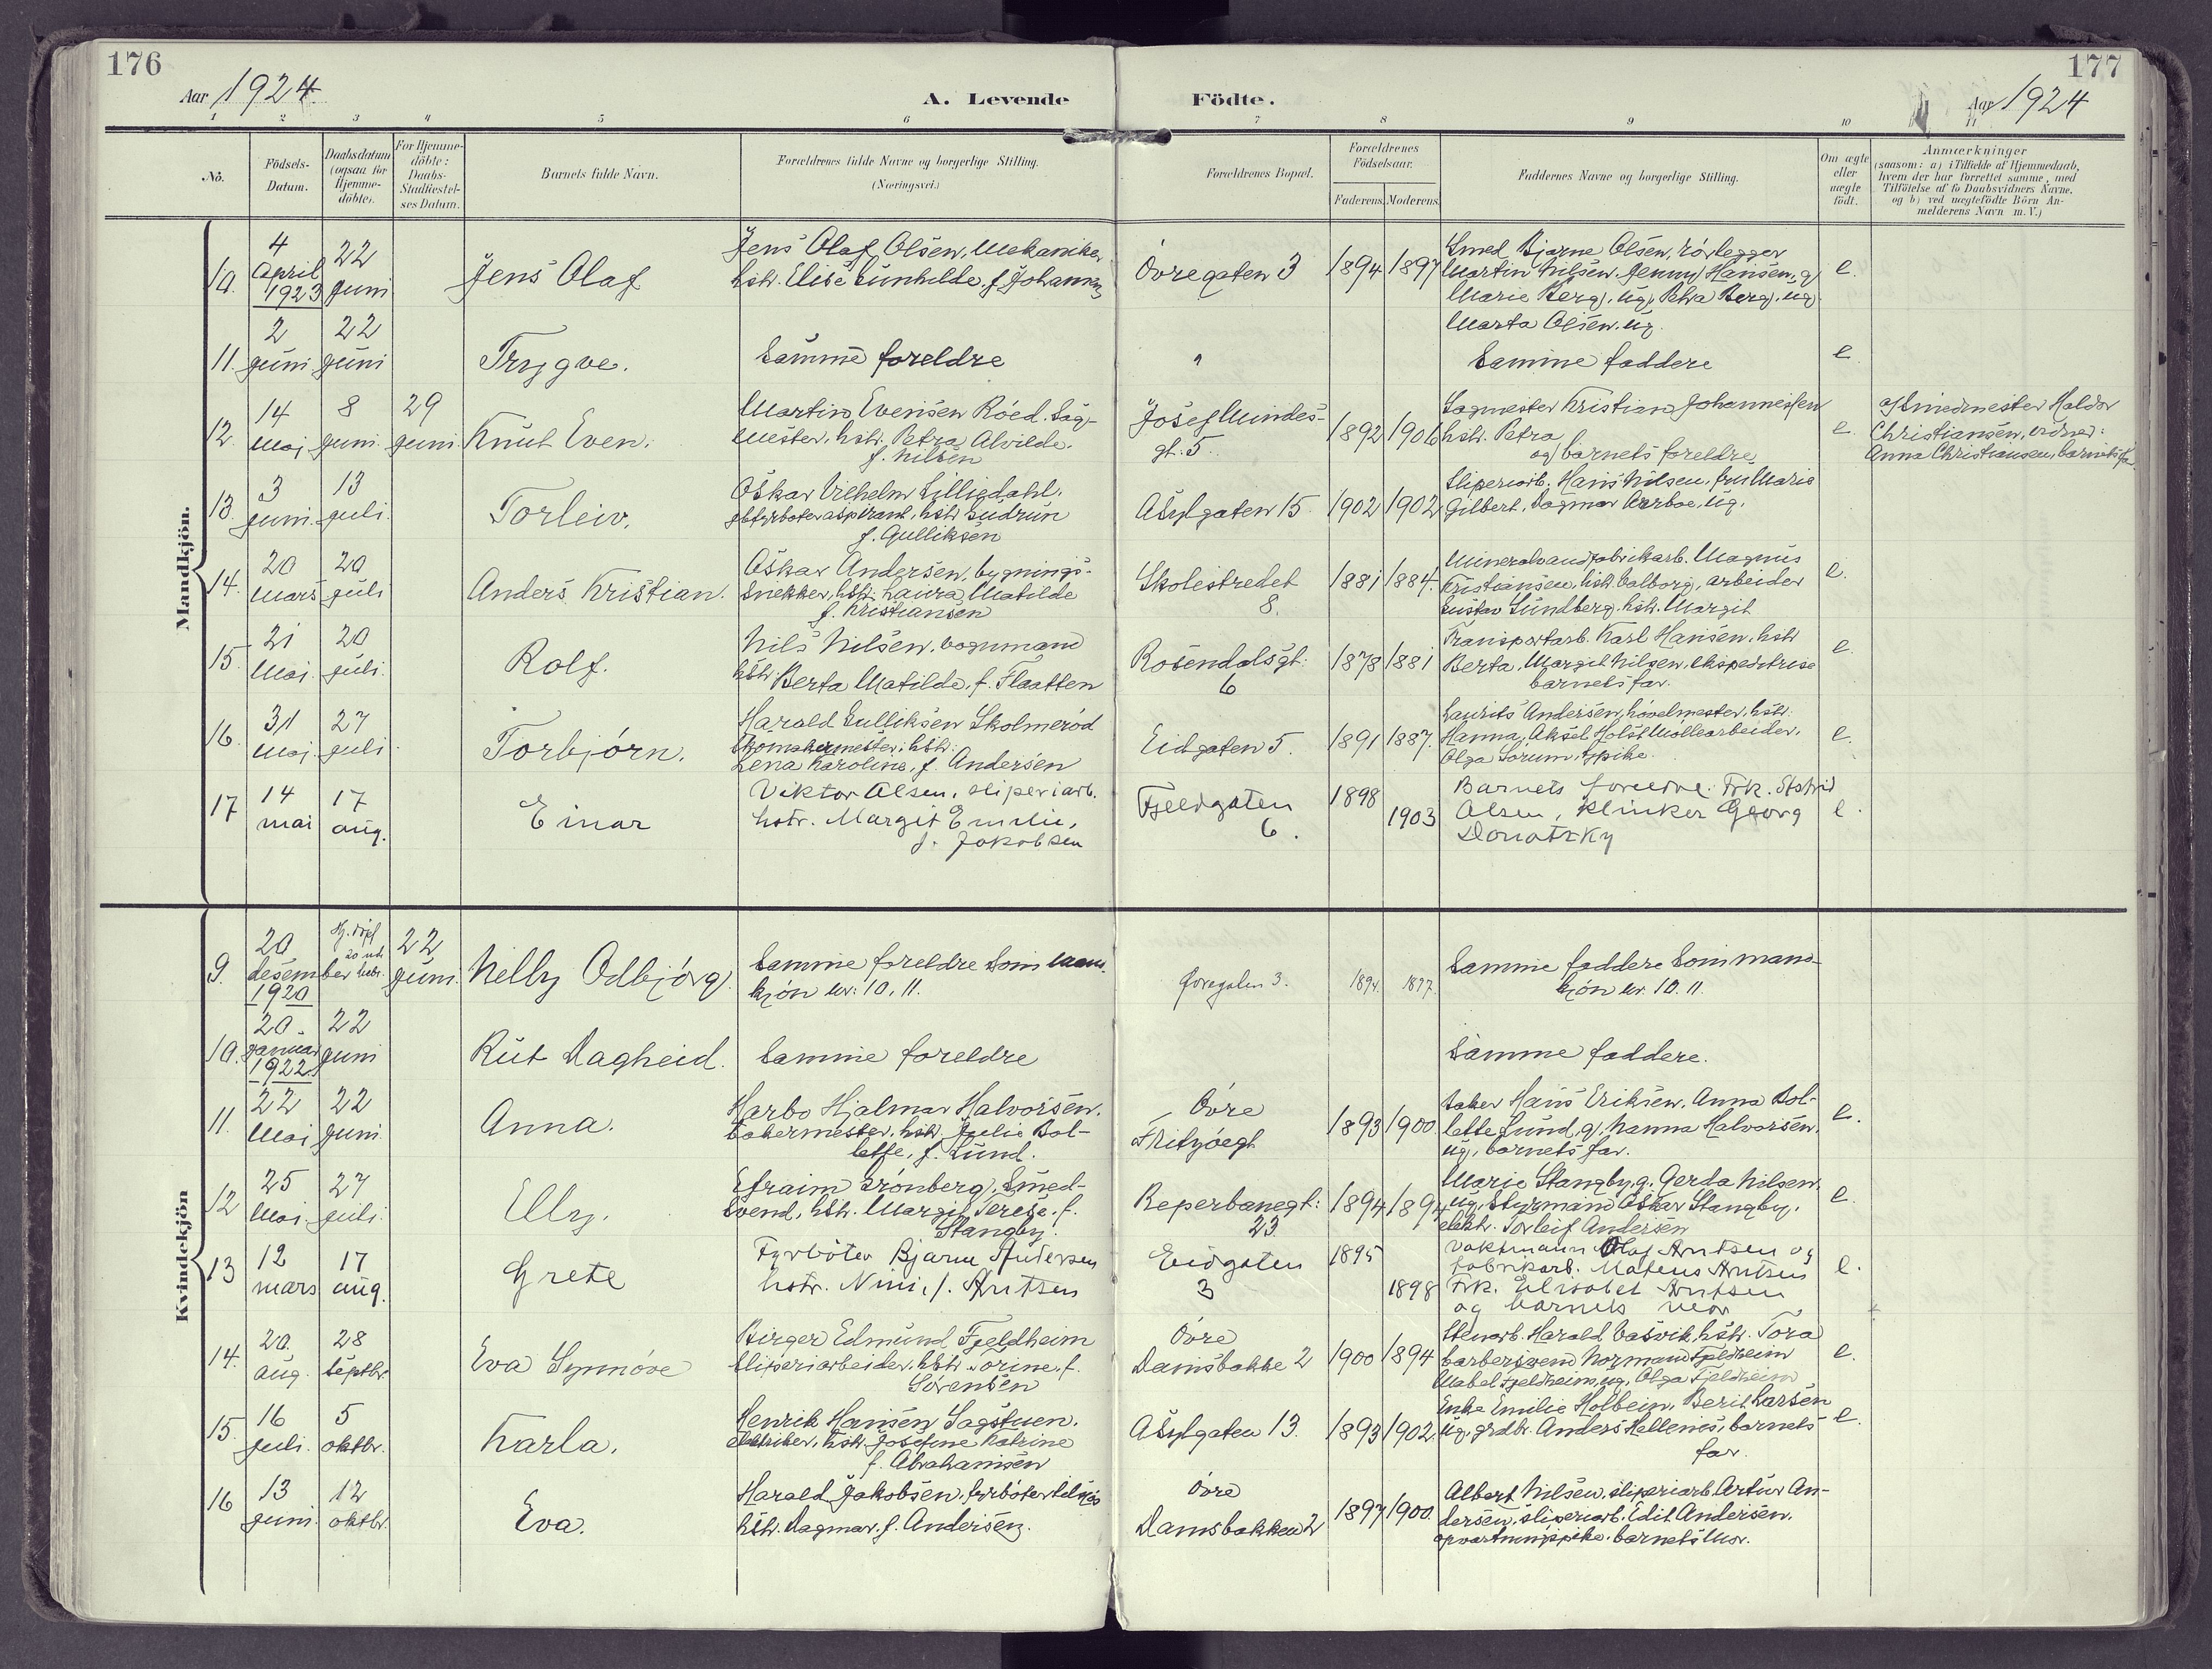 176
Aar 1924.
A. Levende
Födte.
177
Aar 1924
1 2 3 4 5 6 7 8 9 10 11
No. Födsels-Datum. Daabsdatum (ogsaa for Hjemme-döbte). For Hjemme-döbte: Daabs-Stadfæstel-ses Datum. Barnets fulde Navn. Forældrenes fulde Navne og borgerlige Stilling. (Næringsvei.) Forældrenes Bopæl. Forældrenes Födselsaar. Faderens. Moderens. Faddernes Navne og borgerlige Stilling. Om ægte eller uægte födt. Anmærkninger (saasom: a) i Tilfælde af Hjemmedaab, hvem der har forrettet samme, med Tilföielse af to Daabsvidners Navne, og b) ved uægtefödte Börn An-melderens Navn m. V.)
Mandkjön.
10. 4 April 1923 22 juni Jens Olaf
Jens Olaf Olsen, Mekaniker,
hstr. Elise Gunhilde, f. Johannes
Övregaten 3 1894 1897
Smed Bjarne Olsen, rörlegger
Martin Nilsen, Jenny Hansen, g,
Marie Berg, ug, Petra Berg, ug
Marta Olsen, ug.
e.
11. 2 juni 22 juni Trygve. Samme foreldre " Samme faddere e.
12. 14 Mai 8 juni 29 juni Knut Even.
Martin Evensen Röed. Sag-
mester, hstr. Petra Alvilde.
f. Nilsen
Josef Mindes-
gt. 5. 1892 1906
Sagmester Kristian Johannessen
hstr. Petra
og barnets foreldre
e.
Smedmester Haldor
Christiansen,
Anna Christiansen, barnets far
13. 3 juni 13 juli Torleiv.
Oskar Vilhelm Lilliedahl,
hstr. Gudrun
f. Gulliksen
Asylgaten 15. 1902 1902
Sliperiarb. Hans Nilsen, fru Marie
Gilbert, Dagmar Aarboe, ug.
14. 20 Mars 20 juli Anders Kristian.
Oskar Andersen, bygnings-
snekker, hstr. Laura Matilde
f. Kristiansen
Skolestredet
8. 1881 1884.
Mineralvandfabrikarb. Magnus
Kristiansen, hstr. Valborg, arbeider
Gustav Sundberg, hstr. Margit
e.
15. 21 Mai 20 juli. Rolf.
Nils Nilsen, vognmand
hstr. Berta Matilde, f. Flaatten
Rosendalsgt:
6 1878 1881
Transportarb. Karl Hansen, hstr
Berta, Margit Nilsen, ekspeditrise
barnets far.
e.
16. 31 Mai. 27 juli Torbjörn.
Harald Gulliksen Skolmeröd
Skomakermester, hstr.
Lena Karoline, f. Andersen
Eidgaten 5. 1891 1887.
Laurits Andersen, hövelmester, hstr.
Hanna, Aksel Holst Möllearbeider,
Olga Sörum, pike.
e.
17 14 mai 17 aug. Einar
Viktor Olsen, sliperiarb.
hstr. Margit Emilie,
f. Jakobsen
Fjeldgaten
6. 1898 1903
Barnets foreldre. Frk. Astrid
Olsen, Klinker Georg
Donatzky
e.
Kvindekjön
9. 20 desember 1920 22 juni. Nelly Odbjörg.
Samme foreldre som mand
kjön nr: 10, 11.
Övregaten 3. 1894. 1897.
Samme faddere som mand-
kjön nr. 10. 11.
10. 20. januar 1922. 22 juni Rut Dagheid. Samme foreldre Samme faddere.
11. 22 Mai 22 juni Anna.
Harbo Hjalmar Halvorsen.
bakermester, hstr. Julie Bol-
lette, f. Lund.
Övre
Fritzöegt 1893 1900
baker Hans Eriksen, Anna Bol-
lette Lund, g, Nanna Halvorsen,
ug, barnets far.
e.
12 25 Mai. 27 juli. Elly.
Efraim Grönberg, Smed-
svend, hstr. Margit Terese. f.
Stangby.
Reperbanegt:
23. 1894 1894
Marie Stangby, g. Gerda Nilsen,
ug, Styrmand Oskar Stangby,
elektr. Torleif Andersen
e.
13 12 mars 17 aug. Grete
Fyrböter Bjarne Andersen
hstr. Nini, f. Arntsen
Eidgaten
3 1895 1898
Vaktmann Olaf Arntsen og
fabrikarb. Mateus Arntsen
Frk. Elisabet Arntsen
og barnets mor
e.
14. 20. aug. 28 septbr. Eva Synnöve
Birger Edmund Fjeldheim
sliperiarbeider, hstr. Sörine, f.
Sörensen
Övre
Damsbakke 2 1900 1894
Stenarb. Harald Vasvik, hstr. Tora
barbersvend Normand Fjeldheim
Mabel Fjeldheim, ug, Olga Fjeldheim
e.
15. 16 juli. 5 oktbr. Karla.
Henrik Hansen Sagstuen,
elektriker, hstr. Josefine Katrine
f. Abrahamsen
Asylgaten 13. 1893 1902.
Enke Emilie Holbein, Berit Larsen
ug, grdbr. Anders Hellenes, barnets
far.
e.
16 13 juni. 12 oktbr. Eva.
Harald Jakobsen, fyrböter tilsjös
hstr. Dagmar. f. Andersen.
Övre
Damsbakken 2 1897 1900.
Albert Nilsen, sliperiarb. Artur An-
dersen, sliperiarb. Edit Andersen,
opvartningspike. barnets Mor.